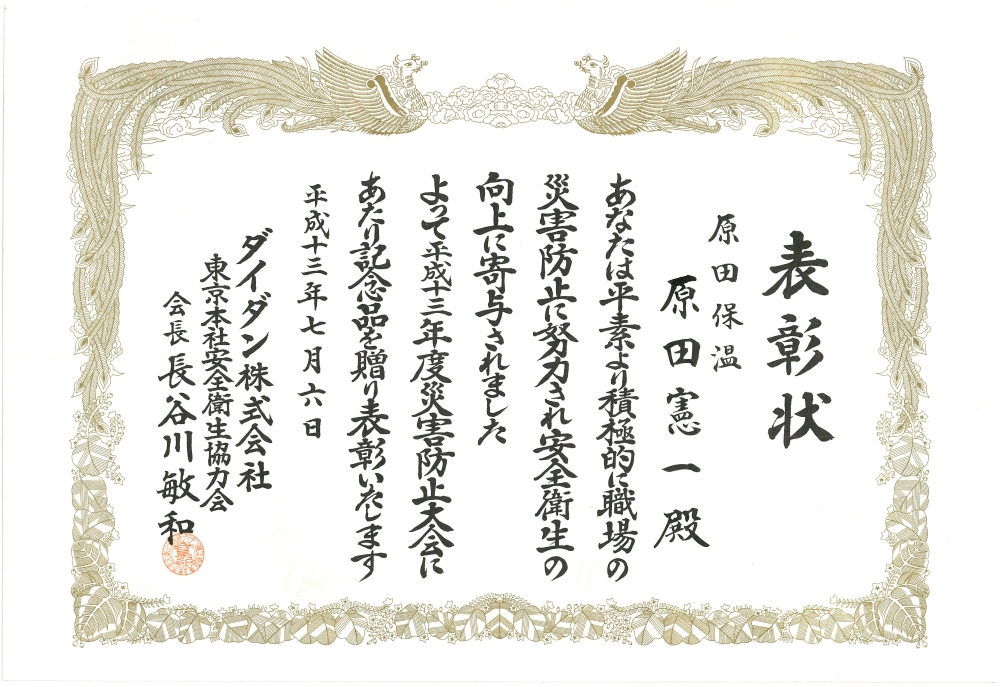 表彰状
原田保温
原田憲一殿
あなたは平素より積極的に職場の
災害防止に努力され安全衛生の
向上に寄与されました
よって平成十三年度災害防止大会に
あたり記念品を贈り表彰いたします
平成十三年七月六日
ダイダン株式会社
東京本社安全衛生協力会
会長 長谷川敏和